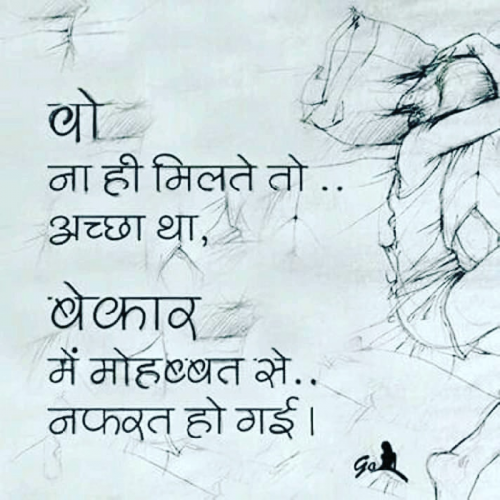 वो
ना ही मिलते तो ..
अच्छा था,
बेकार
में मोहब्बत से..
नफरत हो गई।